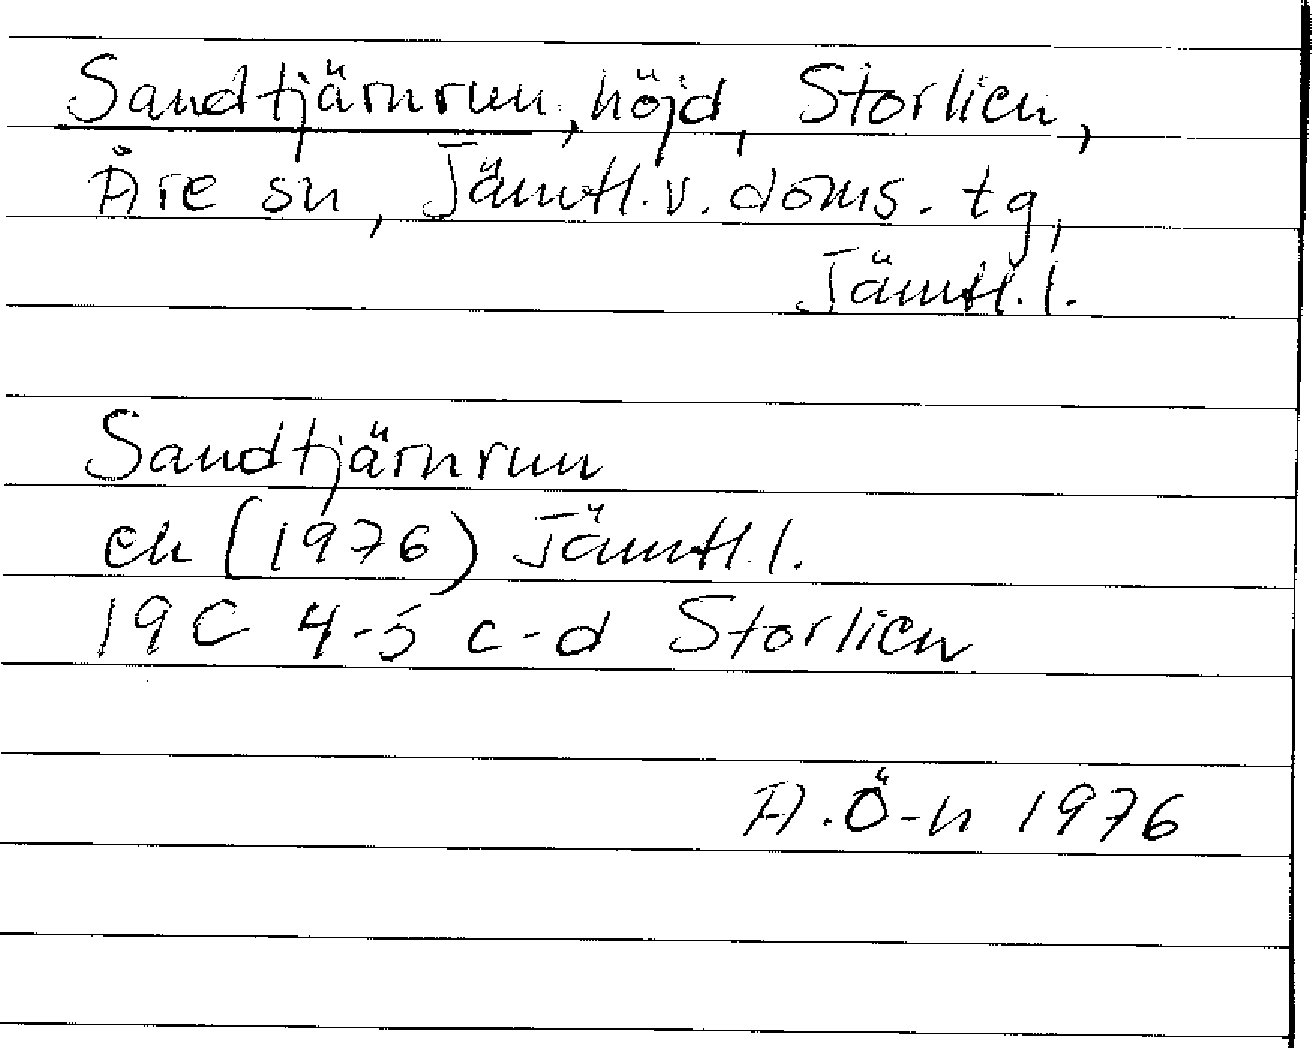 Sandtjärnrun, höjd, Storlien,
Åre sn, Jämtl. v. doms. tg,
Jämtl. l.
Sandtjärnrun
ek (1976) Jämtl. l.
19C 4-5 c-d Storlien
A. Ö-n 1976